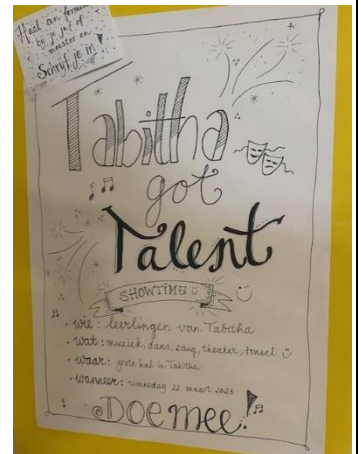 Haal een formulier
bij je juf of
meester en
Schrijf je in!
Tabitha
got
Talent
SHOWTIME
• wie: leerlingen van Tabitha
• wat: muziek, dans, zang, theater, toneel
• waar: grote hal in Tabitha
• wanneer: woensdag 22 maart 2023
DOE mee!